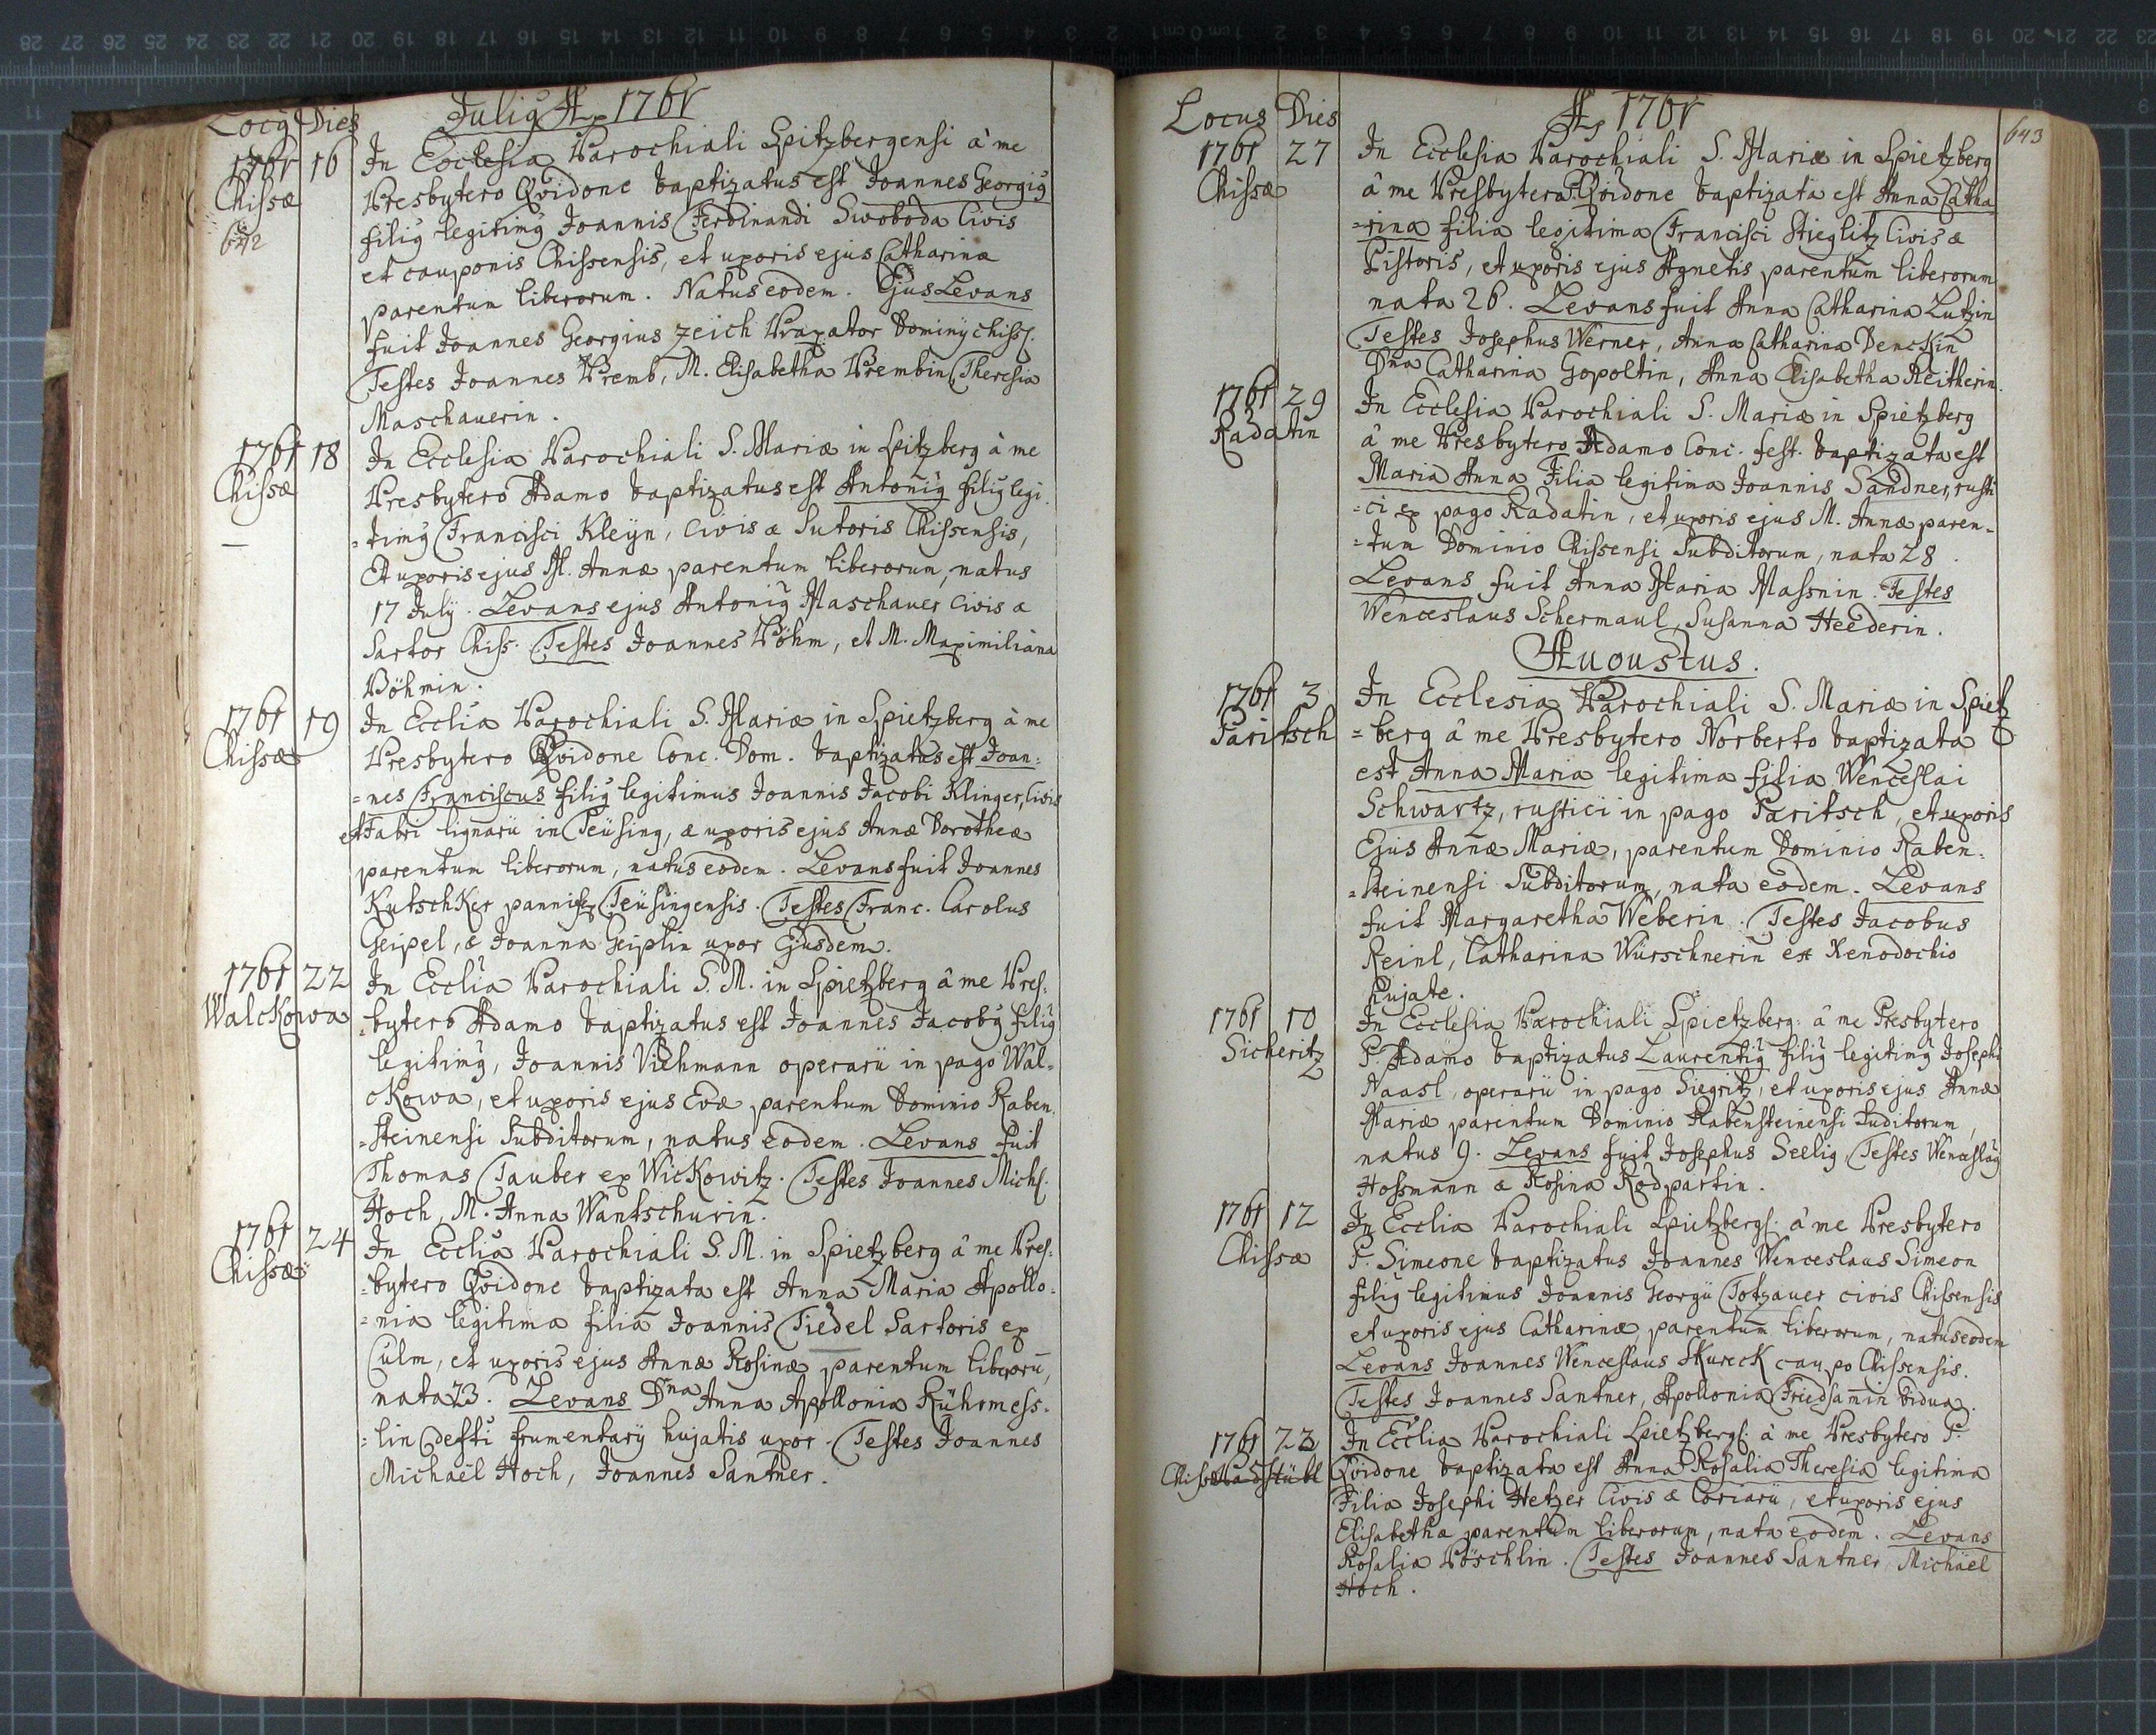 Locq Dies Juliq Ao 1761
1761 16 In Ecclesia Parochiali Spitzbergensi à me
Chissæ Presbytero Qvidone baptizatus est Joannes Georgiq
642 filiq legitimq Joannis Ferdinandi Swoboda Civis
et cauponis Chissensis, et uxoris ejus Catharinæ
parentum liberorum. Natus eodem. Ejus Levans
fuit Joannes Georgius Zeich Braxator Dominÿ Chiss.
Testes Joannes Bremb, M. Elisabetha Brembin, Theresia
Maschauerin.
1761 18 In Ecclesia Parochiali S. Mariæ in Spitzberg à me
Chissæ Presbytero Adamo baptizatus est Antoniq filiq legi
=timq Francisci Kleÿn, Civis & Sutoris Chissensis,
Et uxoris ejus M. Annæ parentum liberorum, natus
17 Julÿ. Levans ejus Antoniq Maschauer Civis &
Sartor Chiss. Testes Joannes Böhm, et M. Maximiliana
Böhmin.
1761 19 In Ecclia Parochiali S. Mariæ in Spietzberg à me
Chissæ Presbytero Qvidone Conc. Dom. baptizatus est Joan=
=nes Franciscus filiq legitimus Joannis Jacobi Klinger, Civis
et Fabri lignarii in Teüsing, & uxoris ejus Annæ Dorotheæ
parentum liberorum, natus eodem. Levans fuit Joannes
Kutschker pannifex Teüsingensis. Testes Franc. Carolus
Geipel, & Joanna Geiplin uxor Ejusdem.
1761 22 In Ecclia Parochiali S. M. in Spietzberg â me Pres=
Walckowa =bytero Adamo baptizatus est Joannes Jacobq filiq
legitimq, Joannis Viehmann operarii in pago Wal=
ckowa, et uxoris ejus Evæ parentum Dominio Raben
=steinensi Subditorum, natus eodem. Levans fuit
Thomas Tauber ex Wickowitz. Testes Joannes Mich.
Hoch, M. Anna Wantschurin.
1761 24 In Ecclia Parochiali S. M. in Spietzberg â me Pres=
Chissæ =bytero Qvidone baptizata est Anna Maria Apollo=
=nia legitima filia Joannis Tiedel Sartoris ex
Culm, et uxoris ejus Annæ Rosinæ parentum liberorū,
nata 23. Levans Dna Anna Apollonia Rührmess=
=lin defti frumentarÿ hujatis uxor. Testes Joannes
Michaël Hoch, Joannes Santner.
Locus Dies Ao 1761 643
1761 27 In Ecclesia Parochiali S. Mariæ in Spietzberg
Chissæ â me Presbytero P. Qvidone baptizata est Anna Catha=
=rina filia legitima Francisci Stieglitz Civis &
Pistoris, et uxoris ejus Agnetis parentum liberorum
nata 26. Levans fuit Anna Catharina Lutzin
Testes Josephus Werner, Anna Catharina Denckin
Dna Catharina Gopoltin, Anna Elisabetha Reitherin.
1761 29 In Ecclesia Parochiali S. Mariæ in Spietzberg
Radatin â me Presbytero Adamo Conc. fest. baptizata est
Maria Anna Filia legitima Joannis Sandner, rusti
=ci ex pago Radatin, et uxoris ejus M. Annæ paren=
=tum Dominio Chissensi Subditorum, nata 28.
Levans fuit Anna Maria Massnin. Testes
Wenceslaus Schermaul, Susanna Heederin.
Augustus.
1761 3 In Ecclesia Parochiali S. Mariæ in Spietz
Paritsch =berg â me Presbytero Norberto baptizata
est Anna Maria legitima filia Wenceslai
Schwartz, rustici in pago Paritsch, et uxoris
Ejus Annæ Mariæ, parentum Dominio Raben=
=steinensi Subditorum, nata eodem. Levans
fuit Margaretha Weberin. Testes Jacobus
Reinl, Catharina Würschnerin ex Xenodochio
hujate.
1761 10 In Ecclesia Parochiali Spietzberg: â me Presbytero
Sicheritz P. Adamo baptizatus Laurentiq filiq legitimq Josephi
Naasl, operarii in pago Siegritz, et uxoris ejus Annæ
Mariæ parentum Dominio Rabensteinensi Suditorum,
natus 9. Levans fuit Josephus Seelig, Testes Wenceslaq
Hossmann & Rosina Rodpartin.
1761 12 In Ecclia Parochiali Spietzberg: â me Presbytero
Chissæ P. Simeone baptizatus Joannes Wenceslaus Simeon
filiq legitimus Joannis Georgii Totzauer civis Chissensis
et uxoris ejus Catharinæ parentum liberorum, natus eodem
Levans Joannes Wenceslaus Skureck caupo Chissensis.
Testes Joannes Santner, Apollonia Friedsamin Vidua.
1761 23 In Ecclia Parochiali Spietzberg: â me Presbytero P.
Chissæ Qvidone baptizata est Anna Rosalia Theresia legitima
Filia Josephi Hetzer Civis & Coriarii, et uxoris ejus
Elisabethæ parentum liberorum, nata eodem. Levans
Rosalia Pöschlin. Testes Joannes Santner, Michaël
Hoch.